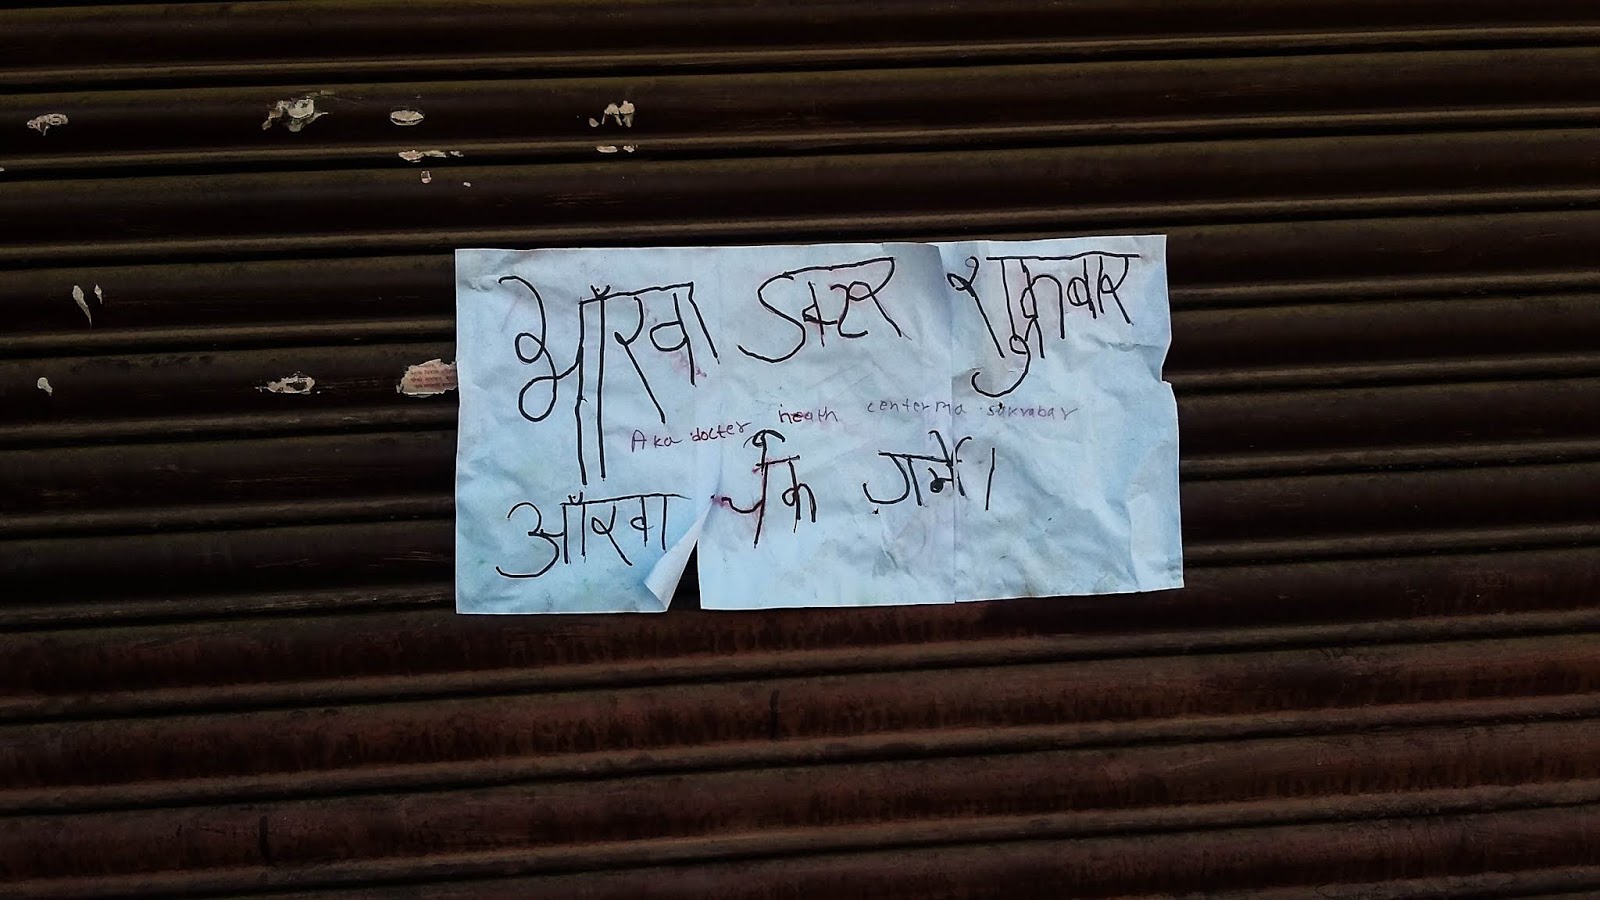 भाँरवा डक्टर शुक्रबार
Aka docter heath centerma sukrabar
आँरवा चेक गर्ने।